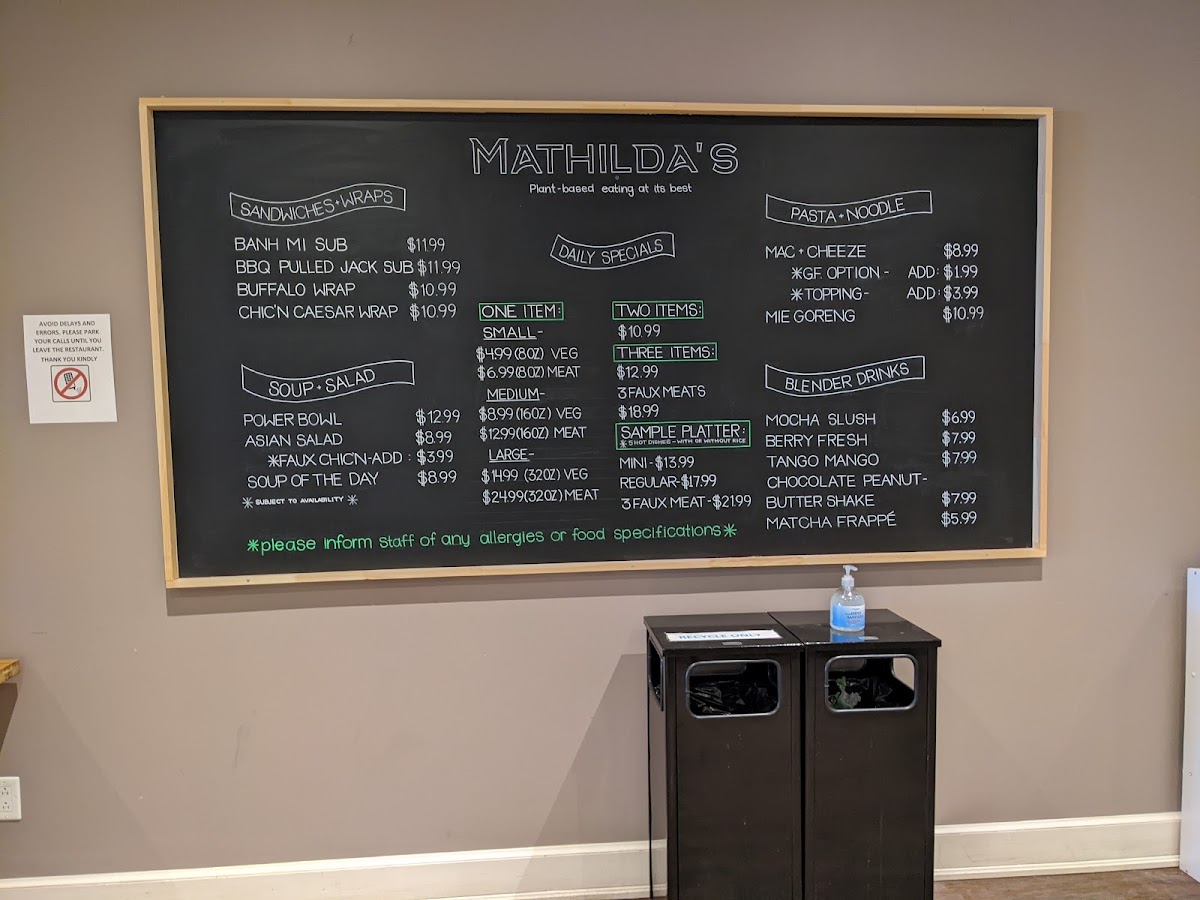 MATHILDA'S
Plant-based eating at its best
SANDWICHES+WRAPS
BANH MI SUB $11.99
BBQ PULLED JACK SUB $11.99
BUFFALO WRAP $10.99
CHIC'N CAESAR WRAP $10.99
SOUP+SALAD
POWER BOWL $12.99
ASIAN SALAD $8.99
*FAUX CHIC'N-ADD: $3.99
SOUP OF THE DAY $8.99
*SUBJECT TO AVAILABILITY*
DAILY SPECIALS
ONE ITEM:
SMALL-
$4.99 (8OZ) VEG
$6.99 (8OZ) MEAT
MEDIUM-
$8.99 (16OZ) VEG
$12.99 (16OZ) MEAT
LARGE-
$14.99 (32OZ) VEG
$24.99 (32OZ) MEAT
TWO ITEMS:
$10.99
THREE ITEMS:
$12.99
3 FAUX MEATS
$18.99
SAMPLE PLATTER:
*5 HOT DISHES - WITH OR WITHOUT RICE
MINI-$13.99
REGULAR-$17.99
3 FAUX MEAT-$21.99
PASTA+NOODLE
MAC+CHEEZE $8.99
*GF. OPTION- ADD: $1.99
*TOPPING- ADD: $3.99
MIE GORENG $10.99
BLENDER DRINKS
MOCHA SLUSH $6.99
BERRY FRESH $7.99
TANGO MANGO $7.99
CHOCOLATE PEANUT-
BUTTER SHAKE $7.99
MATCHA FRAPPÉ $5.99
*please inform staff of any allergies or food specifications*
AVOID DELAYS AND
ERRORS. PLEASE PARK
YOUR CALLS UNTIL YOU
LEAVE THE RESTAURANT.
THANK YOU KINDLY
RECYCLE ONLY